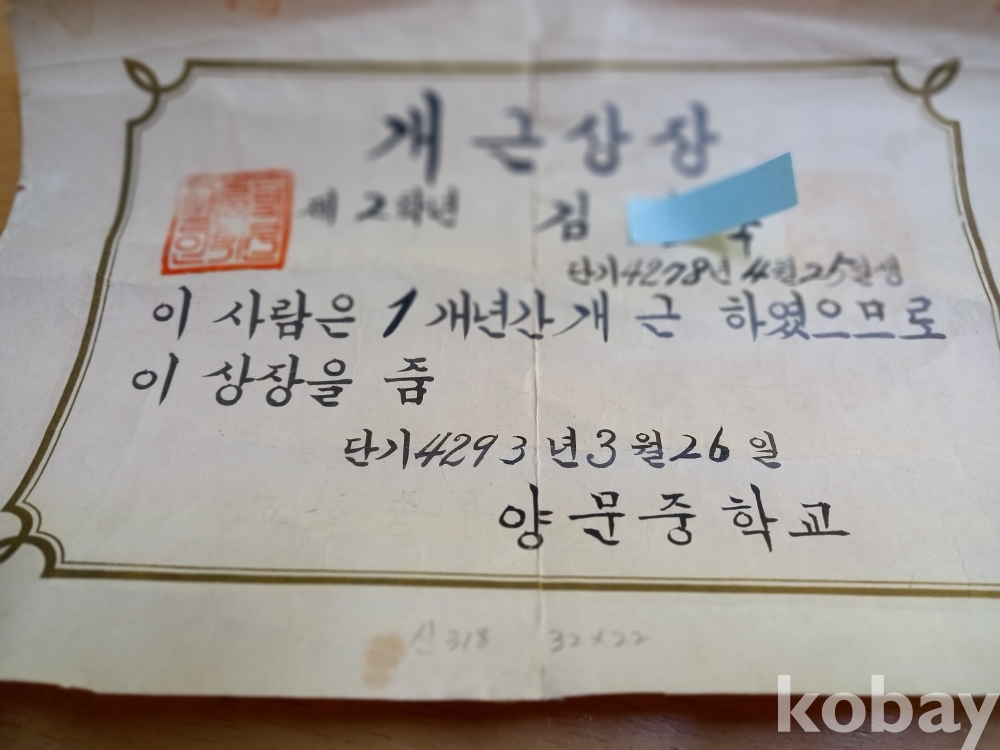 개근상장
제 2학년 김
단기4278년 4월25일생
이 사람은 1개년간 개 근 하였으므로
이 상장을 줌
단기4293년3월26일
양문중학교
신318 32x22
kobay